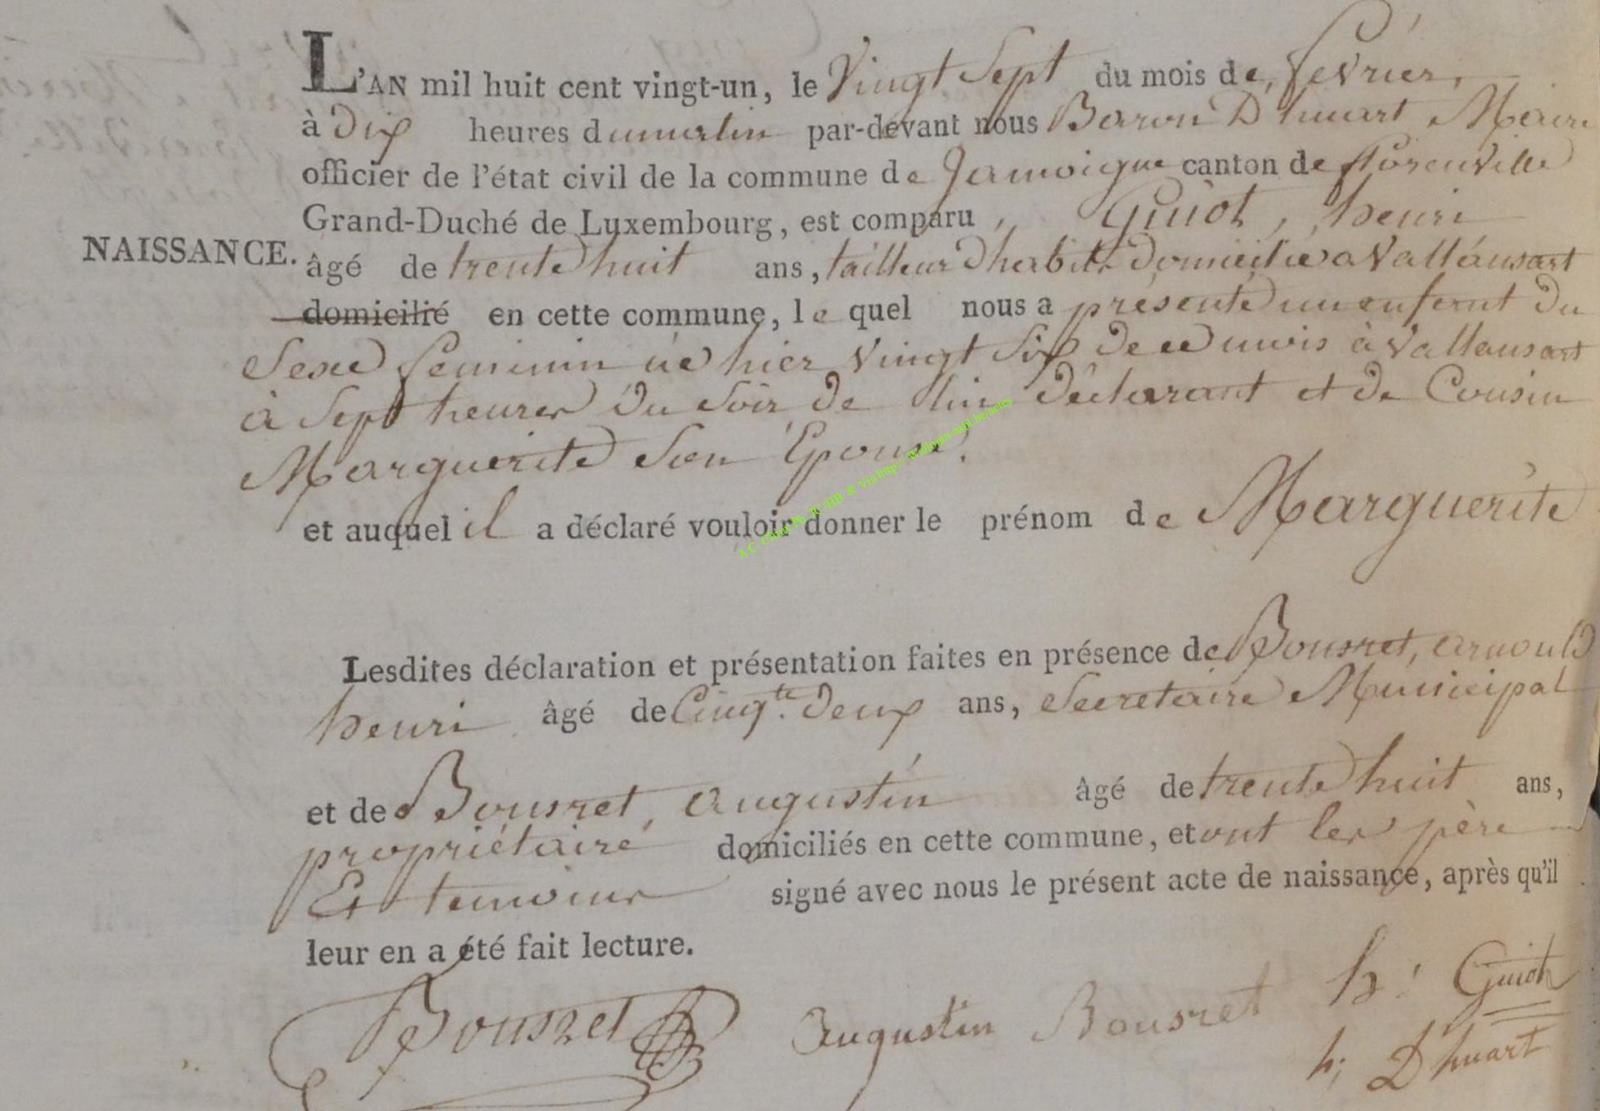 L'AN mil huit cent vingt-un, le Vingt Sept du mois de, fevrier,
à Dix heures du matin par-devant nous Baron D'huart Maire
officier de l'état civil de la commune de Jamoigne canton de florenville
Grand-Duché de Luxembourg, est comparu, Guiot, henri
NAISSANCE.
âgé de trente huit ans, tailleur D'habits Domicilié a Vallansart
domicilié en cette commune, le quel nous a présenté un enfant Du
Sexe feminin né hier Vingt Six De ce mois à Vallansart
à Sept heures Du Soir De lui Déclarant et De Cousin
Marguerite Son Epouse.
et auquel il a déclaré vouloir donner le prénom de Marguerite
Lesdites déclaration et présentation faites en présence de Bousret, arnould
henri âgé de Cinq.te Deux ans, Secretaire Municipal
et de Bousret, augustin âgé de trente huit ans,
propriétaire domiciliés en cette commune, et ont les père
Et temoins signé avec nous le présent acte de naissance, après qu'il
leur en a été fait lecture.
Bousret Augustin Bousret h: Guiot
h; D'huart